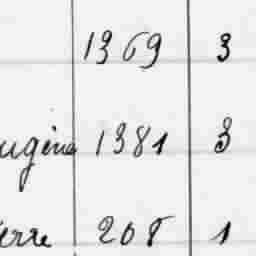 1369 3
ugène 1381 3
erre 208 1